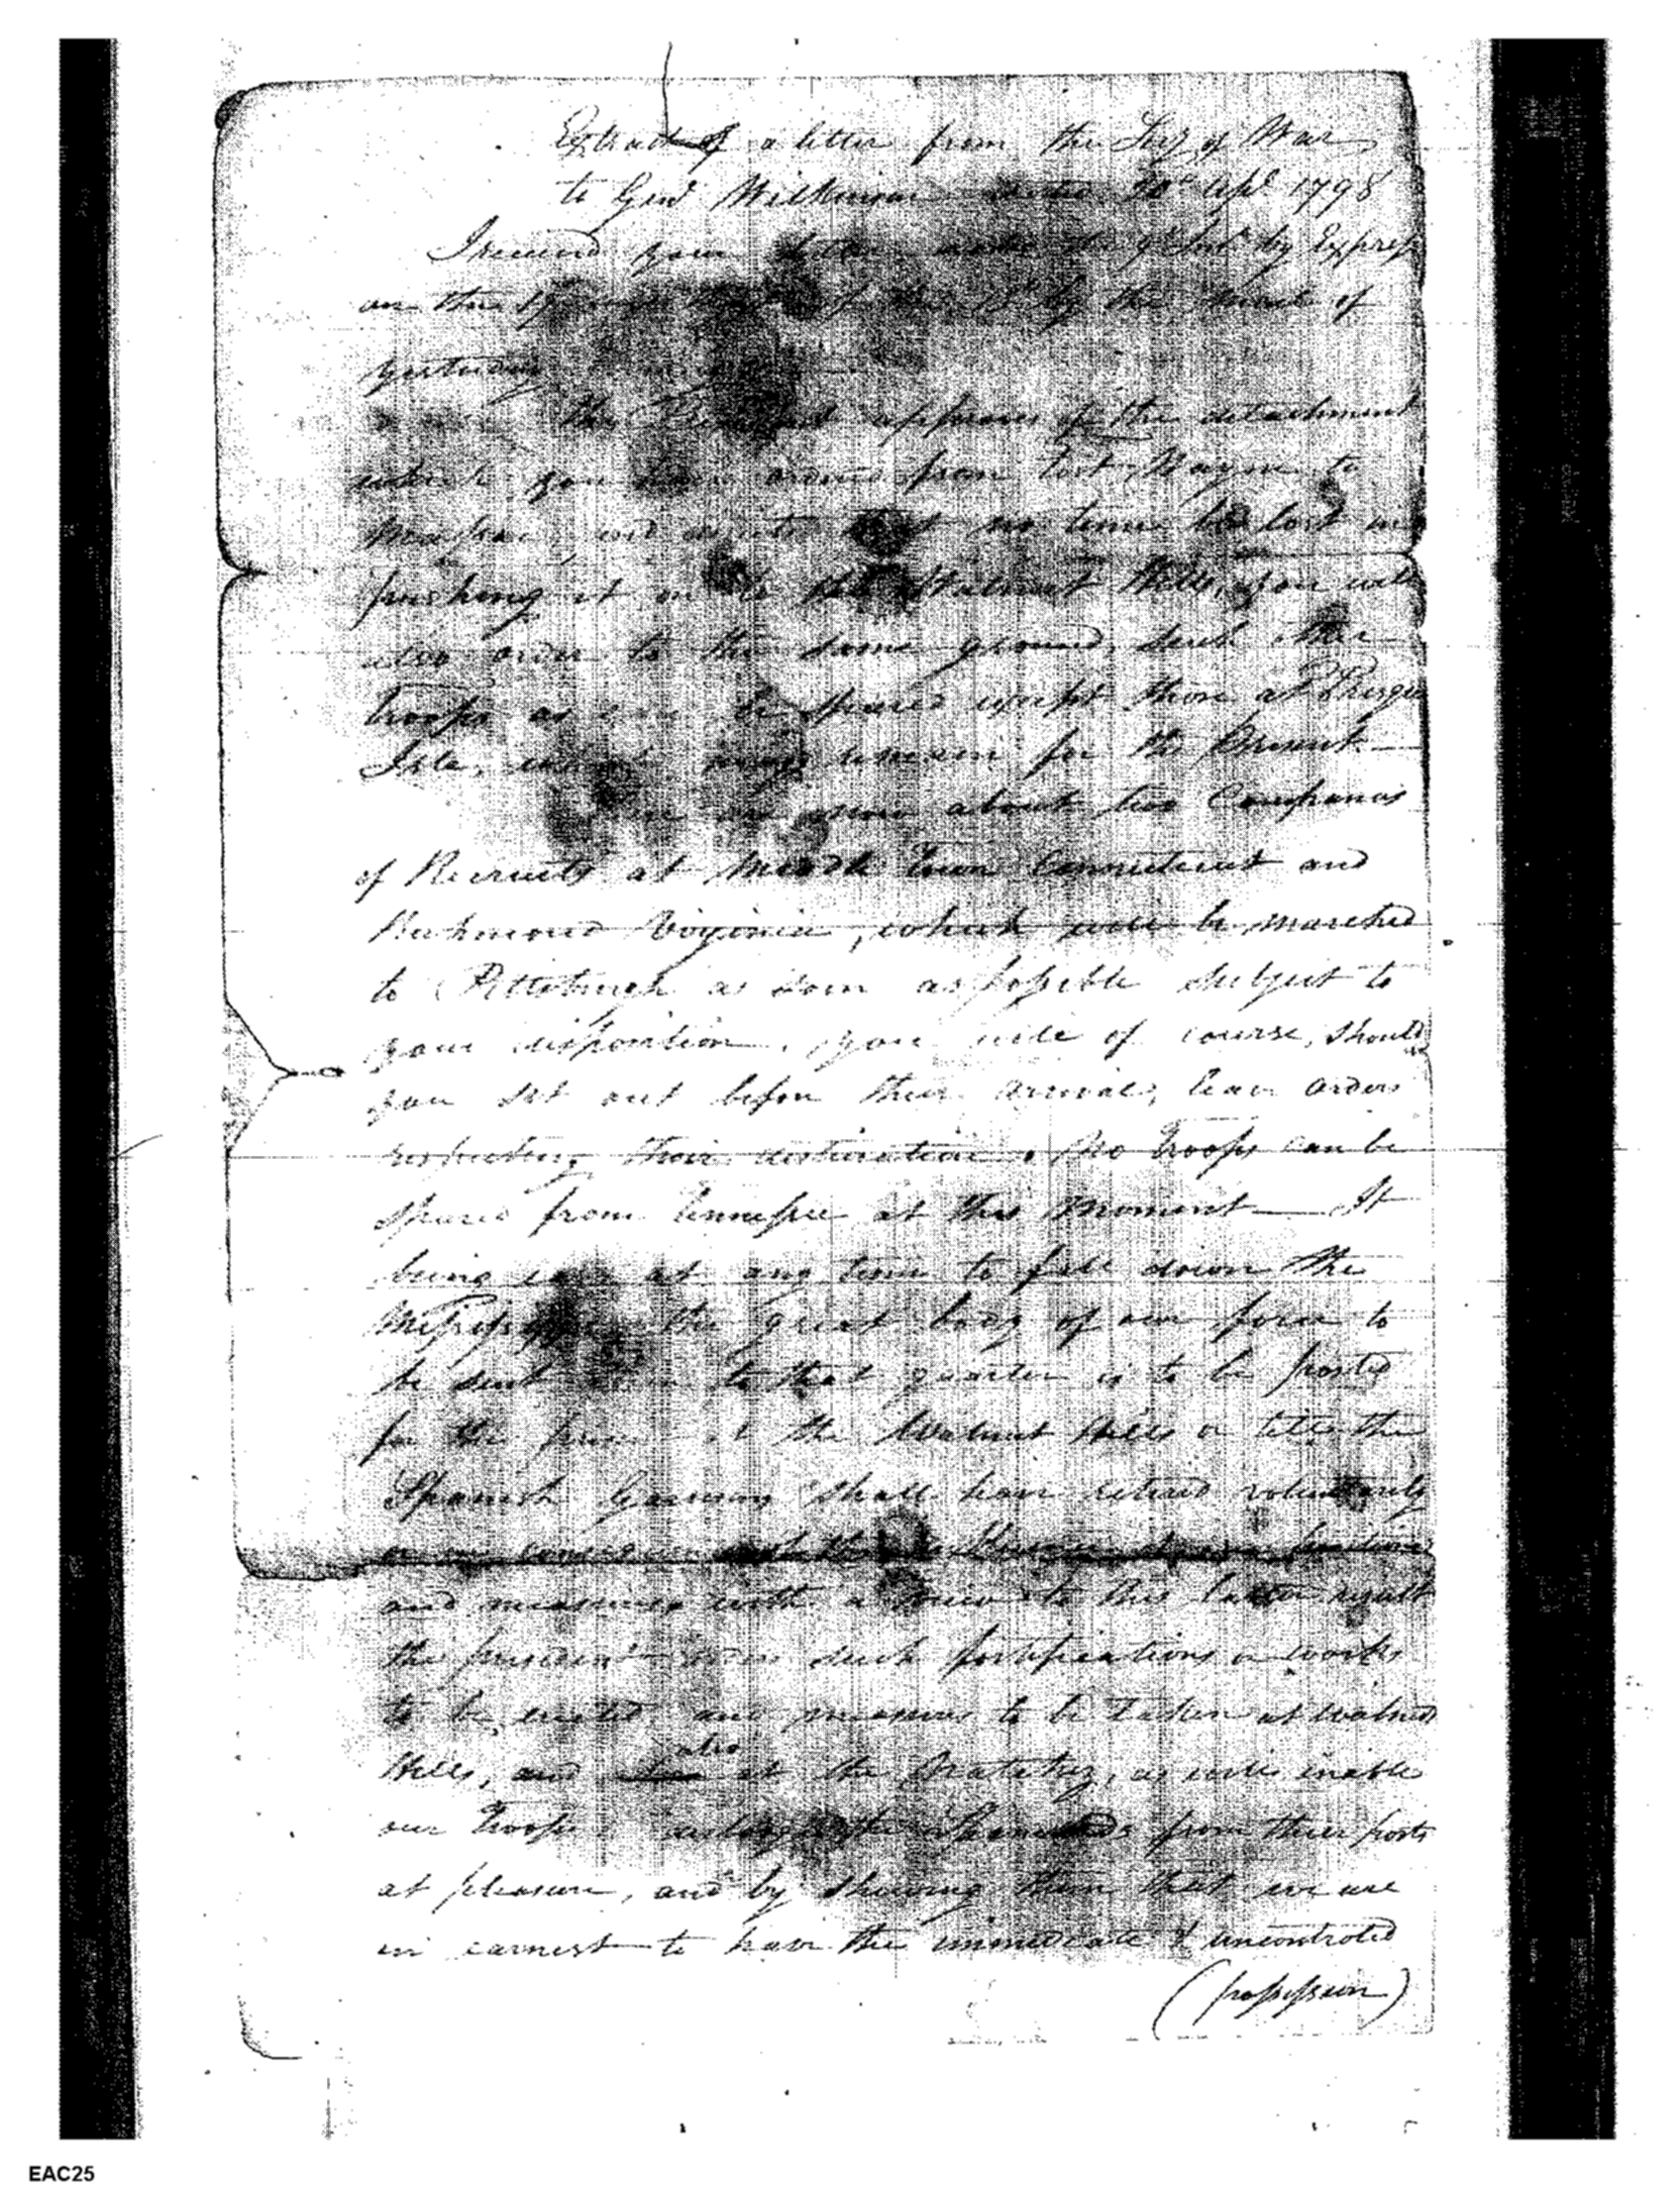 Extract of a letter from the Secy of War
to Genl Wilkinson dated 20th Apl 1798
I received your letter the 9th Inst by Express
on the of the by the mail of
yesterday
The President approves of the detachment
which you have ordered from Fort Wayne to
Massac, and directs that no time be lost in
pushing it on to the Walnut Hills, you will
also order to the same ground such other
troops as can be spared except those at Presque
Isle, which may remain for the Present —
There are now about two Companies
of Recruits at Middle Town Connecticut and
Richmond Virginia, which will be marched
to Pittsburgh as soon as possible subject to
your disposition. you will of course, should
you set out before their arrival, leave orders
respecting their destination. No troops can be
spared from Tennessee at this moment — It
being easy at any time to fall down the
Mississippi the great body of our force to
be sent to that quarter is to be posted
for the present at the Walnut Hills or till the
Spanish Garrisons shall have retired voluntarily
or in consequence of the
and measures with a view to this latter result
the president orders such fortifications or works
to be erected and measures to be taken at Walnut
Hills, and also at the Natchez, as will enable
our Troops the Spaniards from their posts
at pleasure, and by shewing them that we are
in earnest to have the immediate & uncontroled
(possession)
EAC25